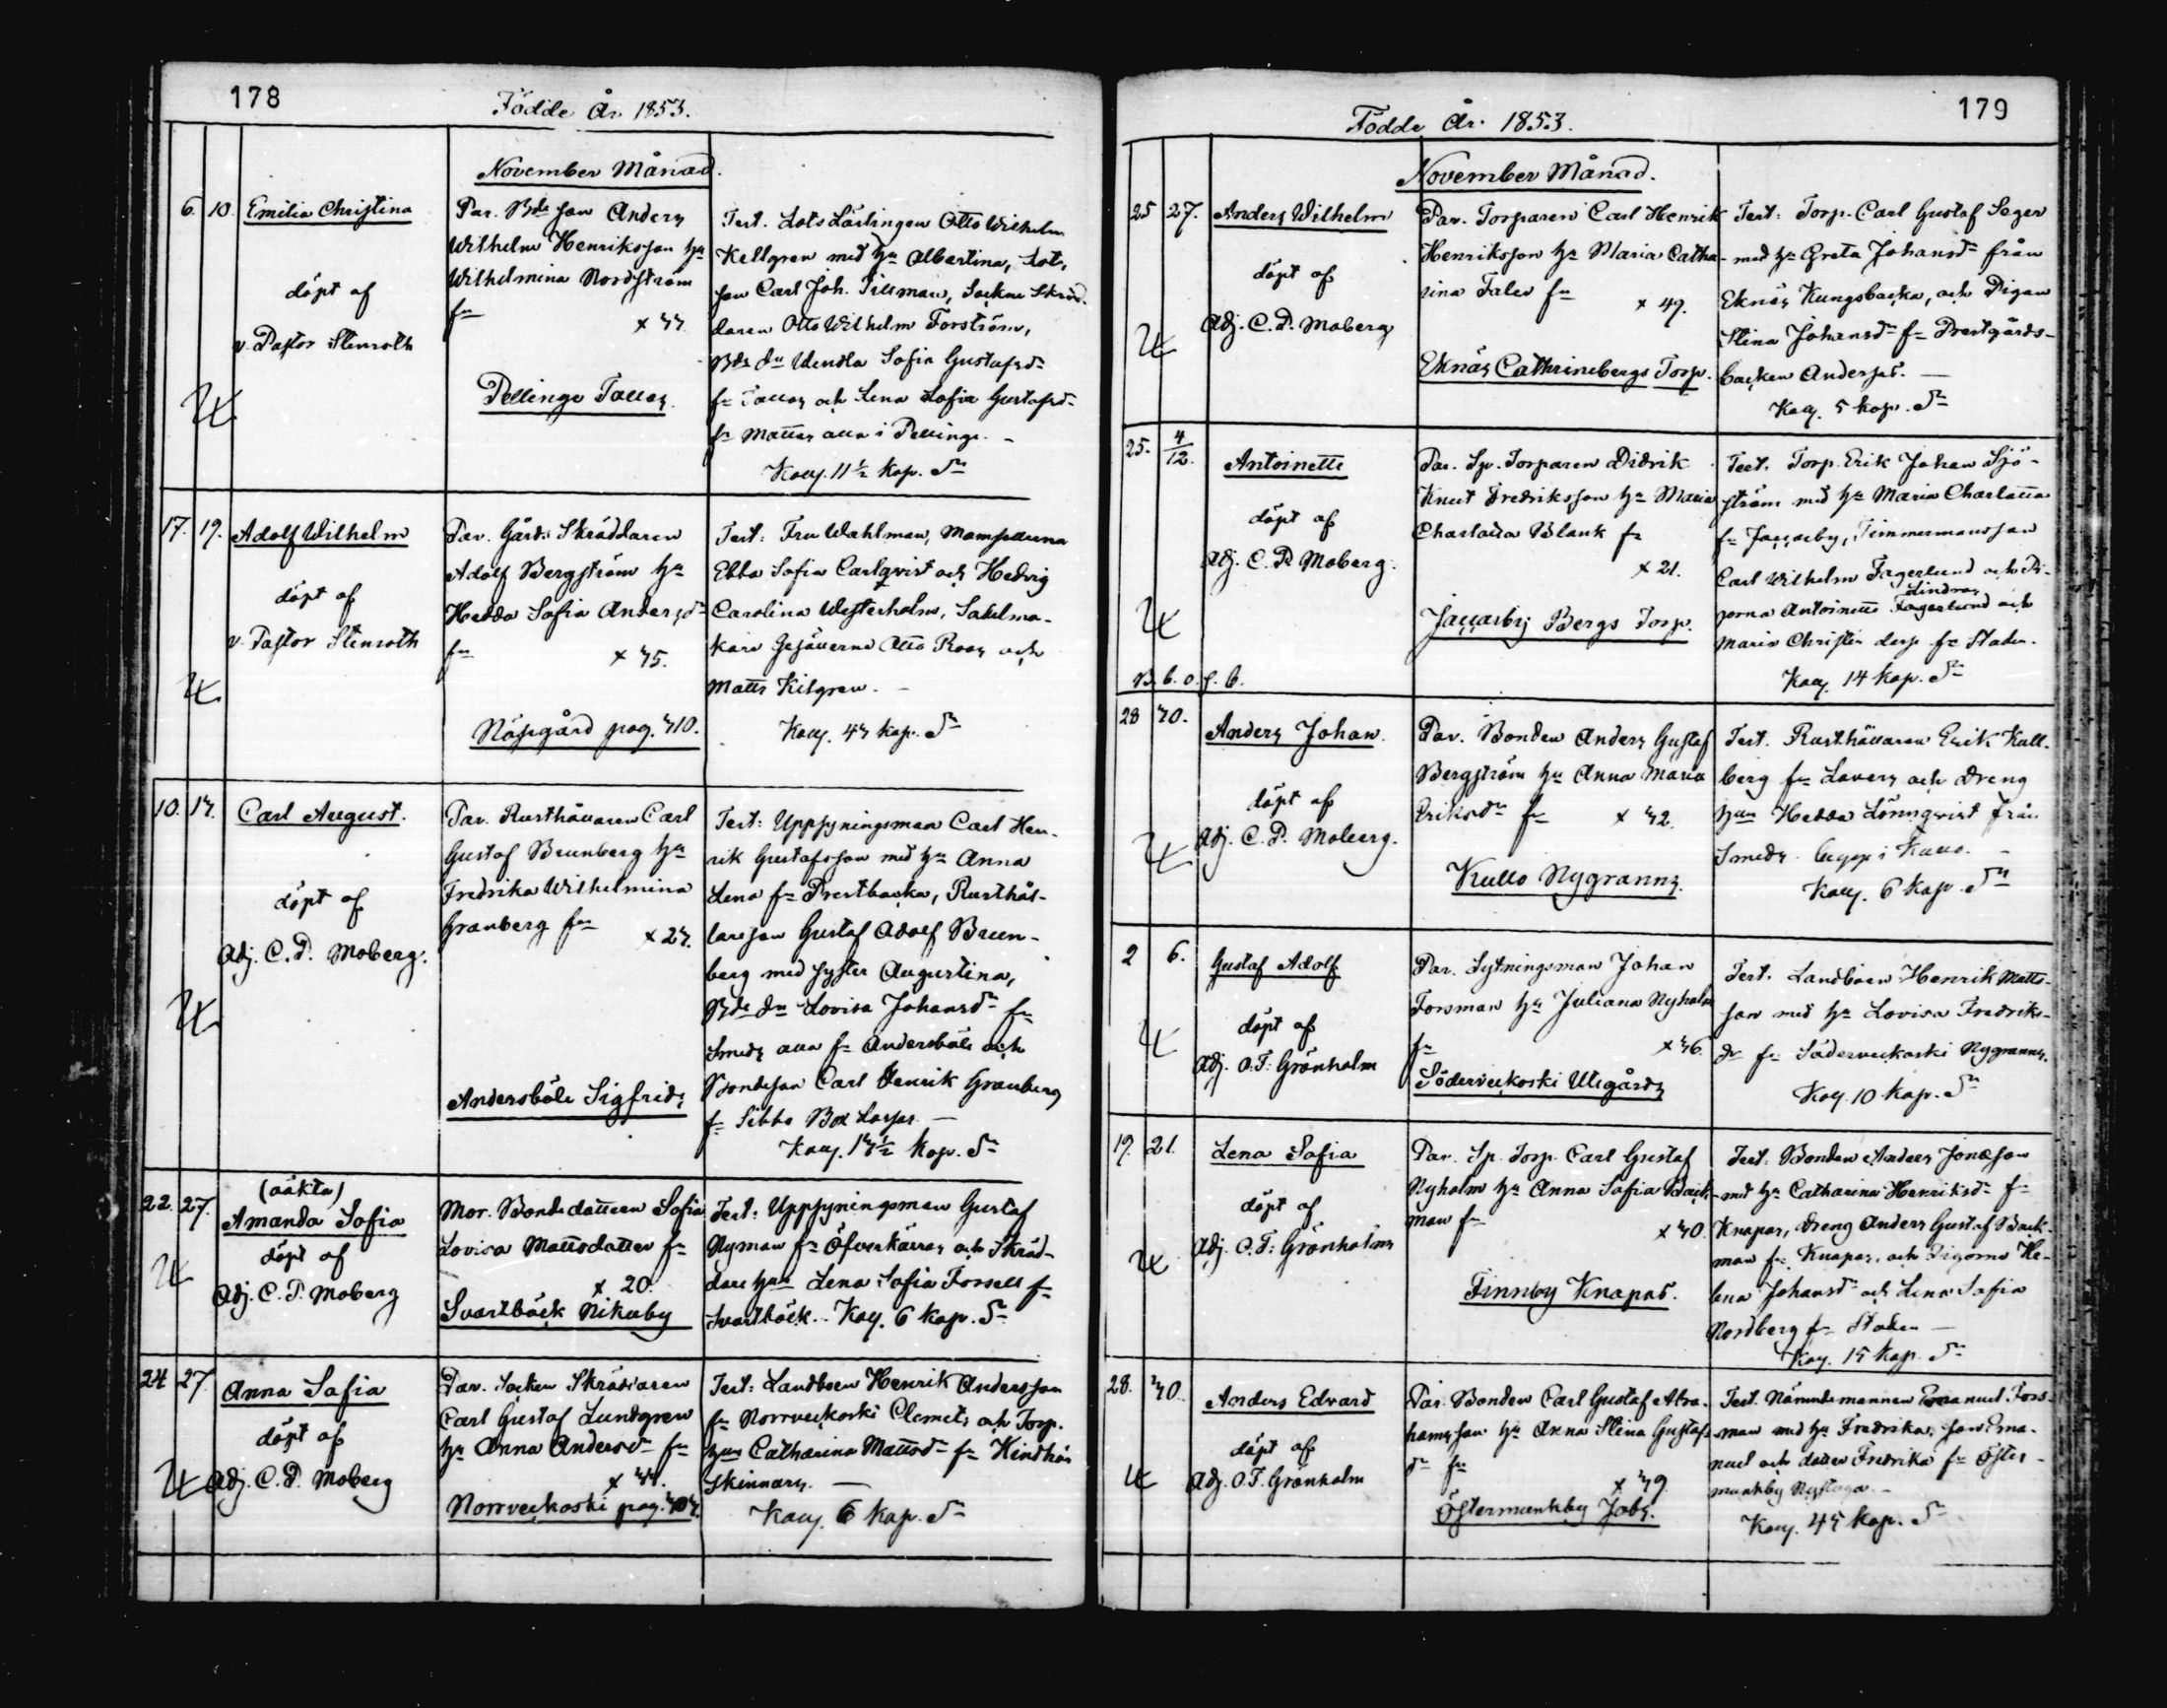 178
Födde År 1853.
November Månad.
6. 10. Emilia Christina
döpt af
v. Pastor Stenroth
Par. Bde son Anders
Wilhelm Henriksson hu
Wilhelmina Nordström
fr
Pellinge Tallas
Test. Lots Lärlingen Otto Wilhelm
Kellgren med hu Albertina, Lots
son Carl Joh. Tillman, Socken Skräd
daren Otto Wilhelm Forström,
Bde dr Wendla Sofia Gustafsdr
fr Tallas och Lena Sofia Gustafsdr
fr Mattas alla i Pellinge. –
Koll. 11½ kop. Sr
17. 19. Adolf Wilhelm
döpt af
v. Pastor Stenroth
Par. Gårds Skräddaren
Adolf Bergström hu
Hedda Sofia Andersdr
fr
Näsegård pag.
Test: Fru Wahlman, Mamsellerna
Ebba Sofia Carlqvist och Hedvig
Carolina Westerholm, Sadelma-
kare Gesällerne Otto Roos och
Matts Kilgren. –
Koll. kop. Sr
10. Carl August.
döpt af
Adj. C. P. Moberg.
Par. Rusthållaren Carl
Gustaf Brunberg hu
Fredrika Wilhelmina
Granberg fr
Andersböle Sigfrids
Test: Uppsyningsman Carl Hen-
rik Gustafsson med hu Anna
Lena fr Prestbacka, Rusthål-
lareson Gustaf Adolf Brun-
berg med syster Augustina,
Bde dr Lovisa Johansdr fr
Smeds alla fr Andersböle och
Bondeson Carl Henrik Granberg
fr Sibbo Box Lassas –
Koll. kop. Sr
22. 27. (oäkta)
Amanda Sofia
döpt af
Adj. C. P. Moberg
Mor. Bondedottren Sofia
Lovisa Mattsdotter fr
x 20.
Svartbäck Nikuby
Test: Uppsyningsman Gustaf
Nyman fr Öfverkärras och Skräd-
dare hun Lena Sofia Forsell fr
Svartbäck. Koll. 6 kop. Sr
24 27. Anna Sofia
döpt af
Adj. C. P. Moberg
Par. Socken Skräddaren
Carl Gustaf Lundgren
hu Anna Andersdr fr
Norrveckoski pag.
Test: Landboen Henrik Andersson
fr Norrveckoski Clemets och Torp.
hun Catharina Mattsdr fr Hindhår
Skinnars. –
Koll. 6 kop. Sr
179
Födde År 1853.
November Månad.
25 27. Anders Wilhelm
döpt af
Adj. C. P. Moberg
Par. Torparen Carl Henrik
Henriksson hu Maria Catha-
rina fr
x 49.
Eknäs Cathrinebergs Torp.
Test: Torp. Carl Gustaf Seger
med hu Greta Johansdr från
Eknäs Kungsbacka, och Pigan
Stina Johansdr fr Prestgårds-
backen Anders. –
Koll. 5 kop. Sr
25. 4/12. Antoinette
döpt af
Adj. C. P. Moberg.
B. b. o. f. b.
Par. Sp. Torparen Didrik
Knut Fredriksson hu Maria
Charlotta Blank fr
x 21.
Jackarby Bergs Torp.
Test. Torp. Erik Johan Sjö-
ström med hu Maria Charlotta
fr Jackarby, Timmermansson
Carl Wilhelm Fagerlund och Pi-
gorna Antoinette Lindroos Fagerlund och
Maria Christin fr Staden.
Koll. 14 kop. Sr
28 30. Anders Johan.
döpt af
Adj. C. P. Moberg.
Par. Bonden Anders Gustaf
Bergström hu Anna Maria
Eriksdr fr x 32.
Kullo Nygranns.
Test. Rusthållaren Erik Kull-
berg fr Lavers och Dreng
hun Hedda Lönnqvist från
Smeds i Kullo. –
Koll. 6 kop. Sr
2 6. Gustaf Adolf
döpt af
Adj. O. F. Grönholm
Par. Sytningsman Johan
Forsman hu Juliana Nyholm
fr x 36.
Söderveckoski Utigårds
Test. Landboen Henrik Matts-
son med hu Lovisa Fredriks-
dr fr Söderveckoski Nygranns.
Koll. 10 kop. Sr
19. 21. Lena Sofia
döpt af
Adj. O. F. Grönholm
Par. Sp. Torp. Carl Gustaf
Nyholm hu Anna Sofia Back-
man fr
x 30.
Finnby Knapas.
Test. Bonden Anders Jonasson
med hu Catharina Henriksdr fr
Knapas, Dreng Anders Gustaf Back-
man fr Knapas, och Pigorna He-
lena Johansdr och Lena Sofia
Nordberg fr Staden –
Koll. 15 kop. Sr
28. 30. Anders Edvard
döpt af
Adj. O. F. Grönholm
Par. Bonden Carl Gustaf Abra-
hamsson hu Anna Stina Gustafs-
dr fr
x 39
Östermunkby Jobs.
Test. Nämndemannen Emanuel Fors-
man med hu Fredrika, son Ema-
nuel och dotter Fredrika fr Öster-
munkby Nystaga. –
Koll. 45 kop. Sr